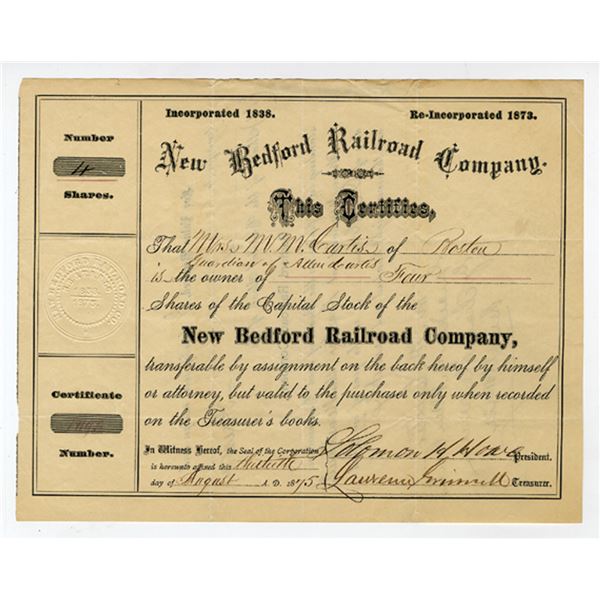 Incorporated 1838. Re-Incorporated 1873.
New Bedford Railroad Company.
This Certifies,
That Mrs. M. M. Curtis of Boston
Guardian of Allen Curtis
is the owner of Four
Shares of the Capital Stock of the
New Bedford Railroad Company,
transferable by assignment on the back hereof by himself
or attorney, but valid to the purchaser only when recorded
on the Treasurer's books.
In Witness Hereof, the Seal of the Corporation
is hereunto affixed this
day of August A. D. 1875
Solomon H Howe President.
Lawrence Grinnell Treasurer.
Number
4
Shares.
1873
Certificate
Number.